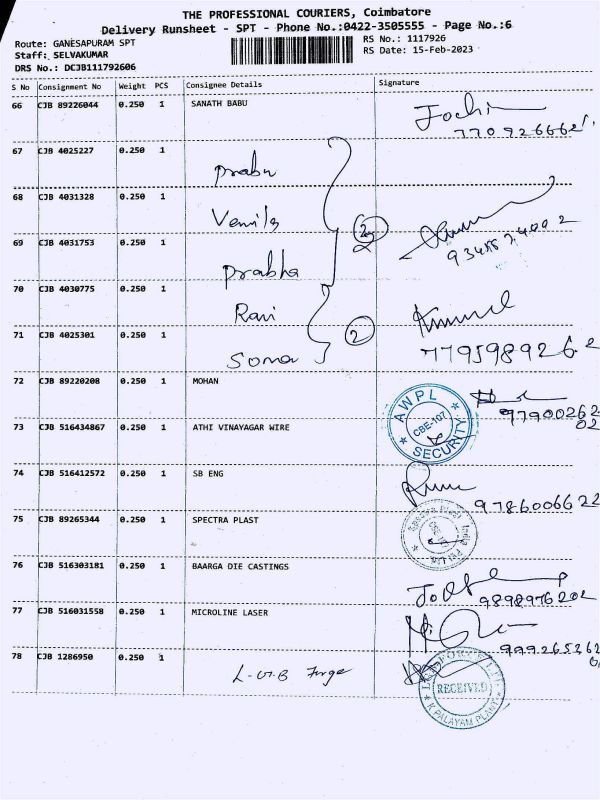 THE PROFESSIONAL COURIERS, Coimbatore
Delivery Runsheet - SPT - Phone No.:0422-3505555 - Page No.:6
Route: GANESAPURAM SPT
RS No.: 1117926
Staff: SELVAKUMAR
RS Date: 15-Feb-2023
DRS No.: DCJB111792606
S No Consignment No Weight PCS Consignee Details Signature
66 CJB 89226044 0.250 1 SANATH BABU
67 CJB 4025227 0.250 1 prabu
68 CJB 4031328 0.250 1 Vennila
69 CJB 4031753 0.250 1 prabha
70 CJB 4030775 0.250 1 Ravi
71 CJB 4025301 0.250 1 Soma
2
7795989262
72 CJB 89220208 0.250 1 MOHAN
9790026202
AWPL
CBE-107
SECURITY
73 CJB 516434867 0.250 1 ATHI VINAYAGAR WIRE
74 CJB 516412572 0.250 1 SB ENG
9786006622
75 CJB 89265344 0.250 1 SPECTRA PLAST
76 CJB 516303181 0.250 1 BAARGA DIE CASTINGS
9898976202
77 CJB 516031558 0.250 1 MICROLINE LASER
78 CJB 1286950 0.250 1 L.G.B Forge
RECEIVED
K PALAYAM PLANT